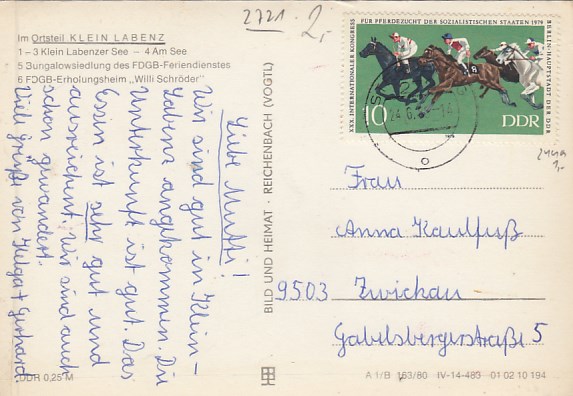 2721.
2,
Im Ortsteil KLEIN LABENZ
1 – 3 Klein Labenzer See – 4 Am See
5 Bungalowsiedlung des FDGB-Feriendienstes
6 FDGB-Erholungsheim „Willi Schröder"
Liebe Mutti!
Wir sind gut in Klein-
Labenz angekommen. Die
Unterkunft ist gut. Das
Essen ist sehr gut und
ausreichend. Wir sind auch
schon gewandert.
Viele Grüße von Helga + Gerhard.
DDR 0,25 M
BILD UND HEIMAT · REICHENBACH (VOGTL)
XXX. INTERNATIONALER KONGRESS
FÜR PFERDEZUCHT DER SOZIALISTISCHEN STAATEN 1974
BERLIN-HAUPTSTADT DER DDR
10
DDR
8
24.6.
1,-
Frau
Anna Kaulfuß
9503 Zwickau
Gabelsbergerstraße 5
A 1/B 153/80 IV-14-483 01 02 10 194